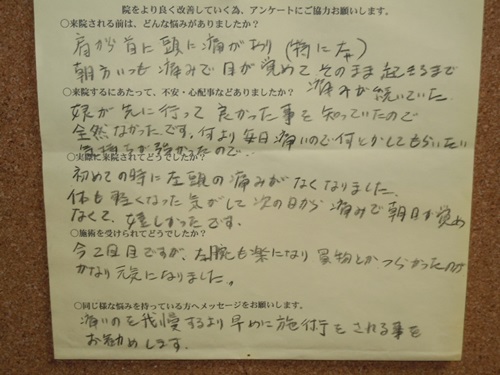 院をより良く改善していく為、アンケートにご協力お願いします。
○来院される前は、どんな悩みがありましたか?
肩から首に頭に痛みがあり(特に左)
朝方いつも痛みで目が覚めてそのまま起きるまで
痛みが続いていた
○来院するにあたって、不安・心配事などありましたか?
娘が先に行って良かった事を知っていたので
全然なかったです。何より毎日痛いので何とかしてもらいたい
気持ちが強かったので
○実際に来院されてどうでしたか?
初めての時に左頭の痛みがなくなりました。
体も軽くなった気がして次の日から痛みで朝目が覚め
なくて、嬉しかったです。
○施術を受けられてどうでしたか?
今2回目ですが、左腕も楽になり買物とかつらかったのが
かなり元気になりました。
○同じ様な悩みを持っている方へメッセージをお願いします。
痛いのを我慢するより早めに施術をされる事を
お勧めします。